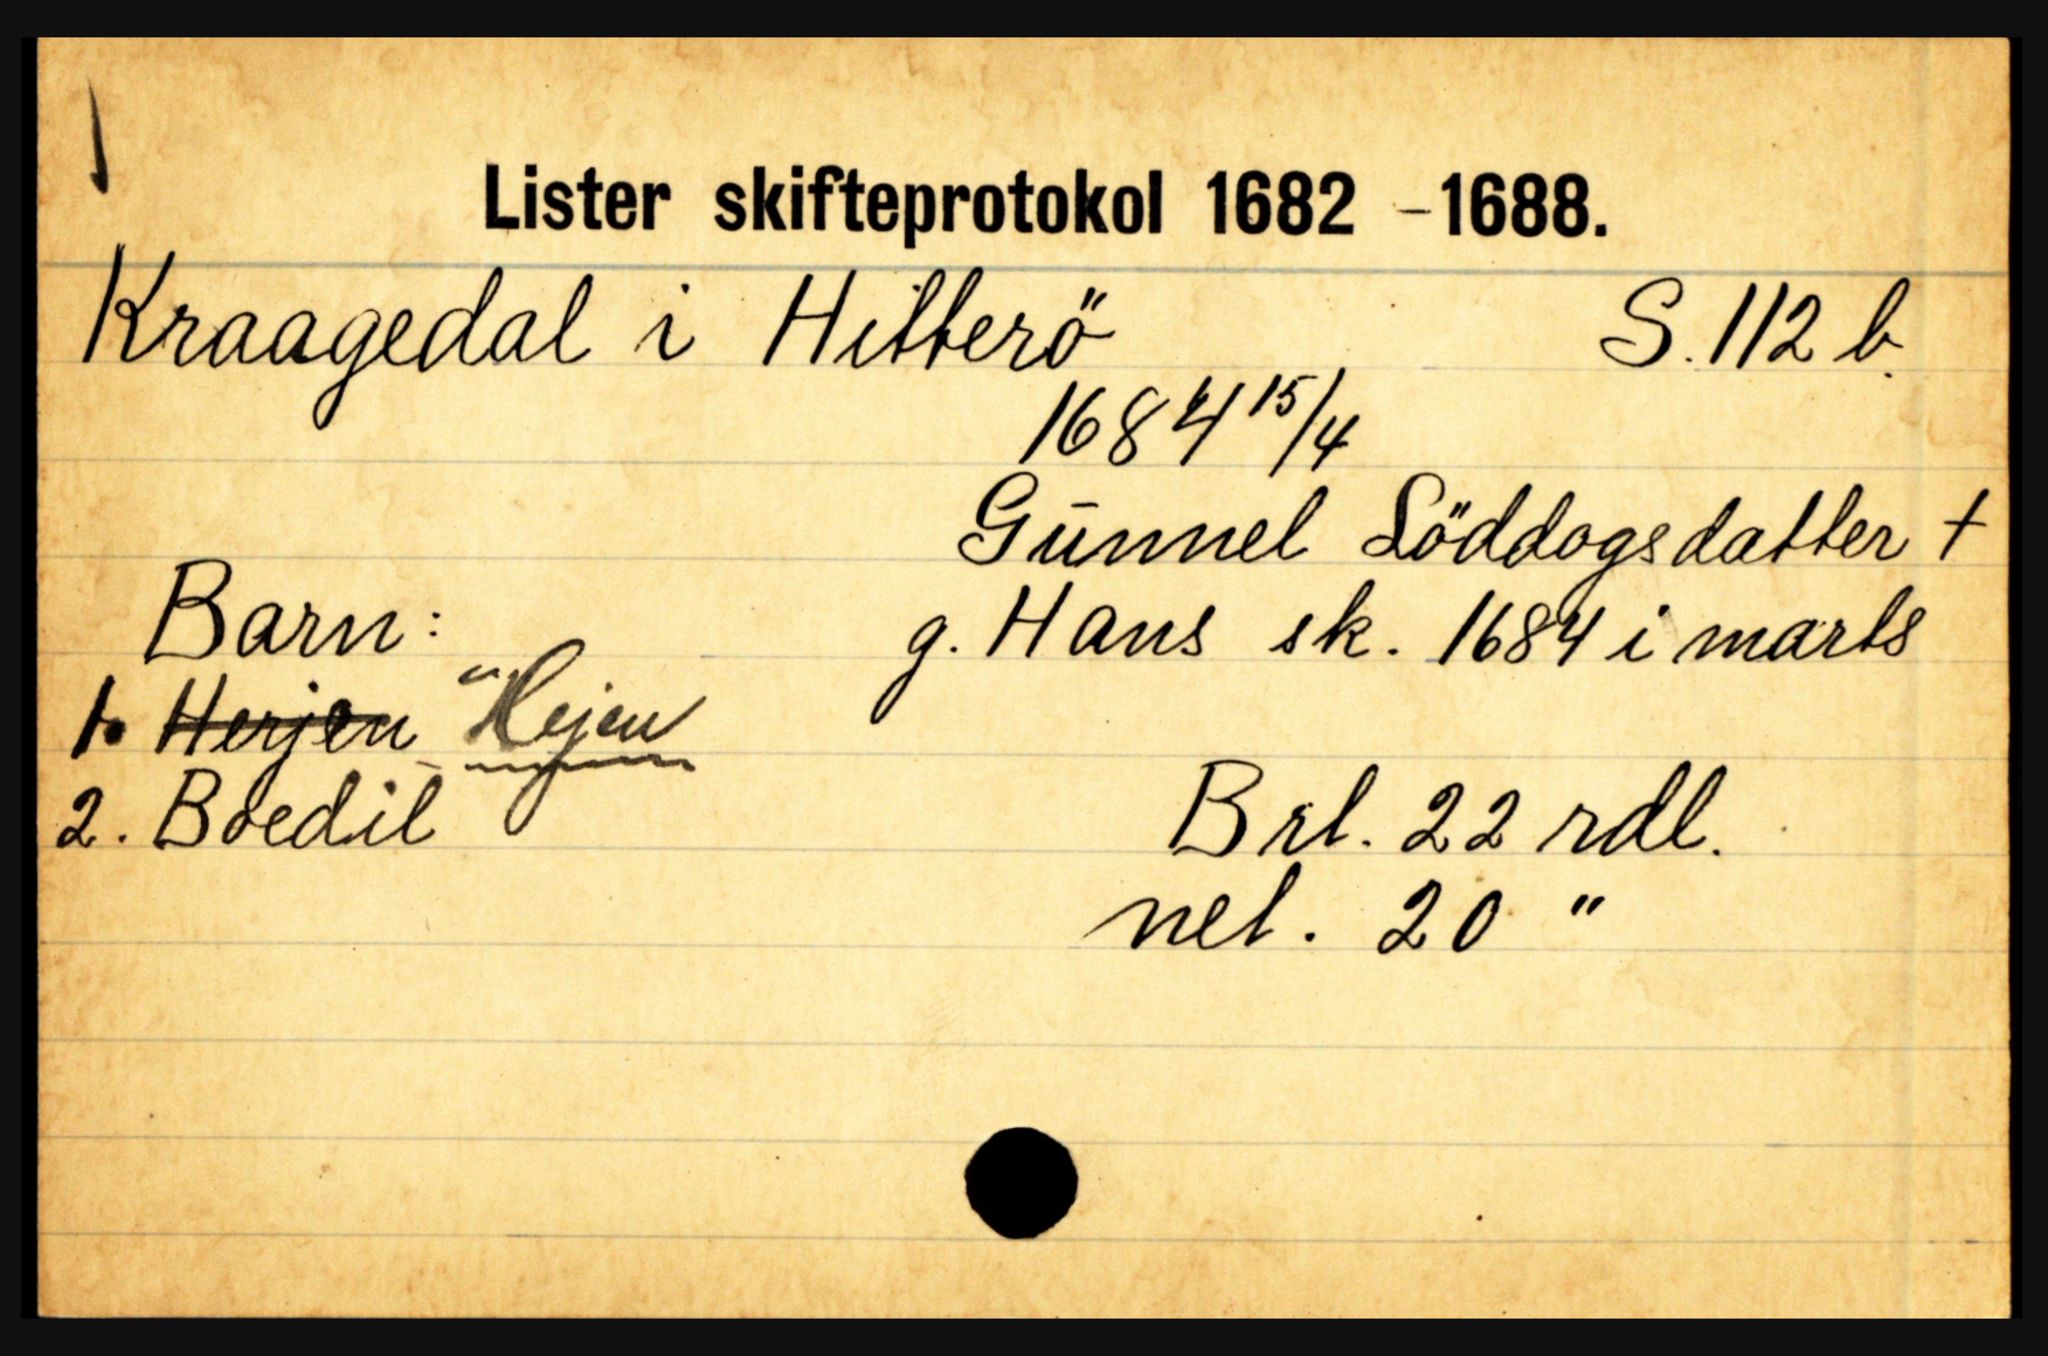 Lister skifteprotokol 1682 - 1688.
Kraagedal i Hitterö S. 112 b.
1684 15/4
Gunnel Löddogsdatter +
Barn: g. Hans sk. 1684 i marts
1. ~~Herjen~~ "Hejen
2. Boedil
Brt. 22 rdl.
net. 20 "